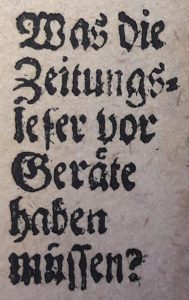 Was die
Zeitungs⸗
leſer vor
Geraͤte
haben
muͤſſen?